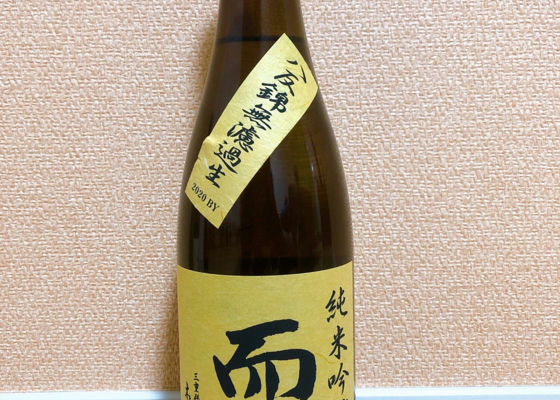 八反錦無濾過生
2020 BY
純米吟
而
三重